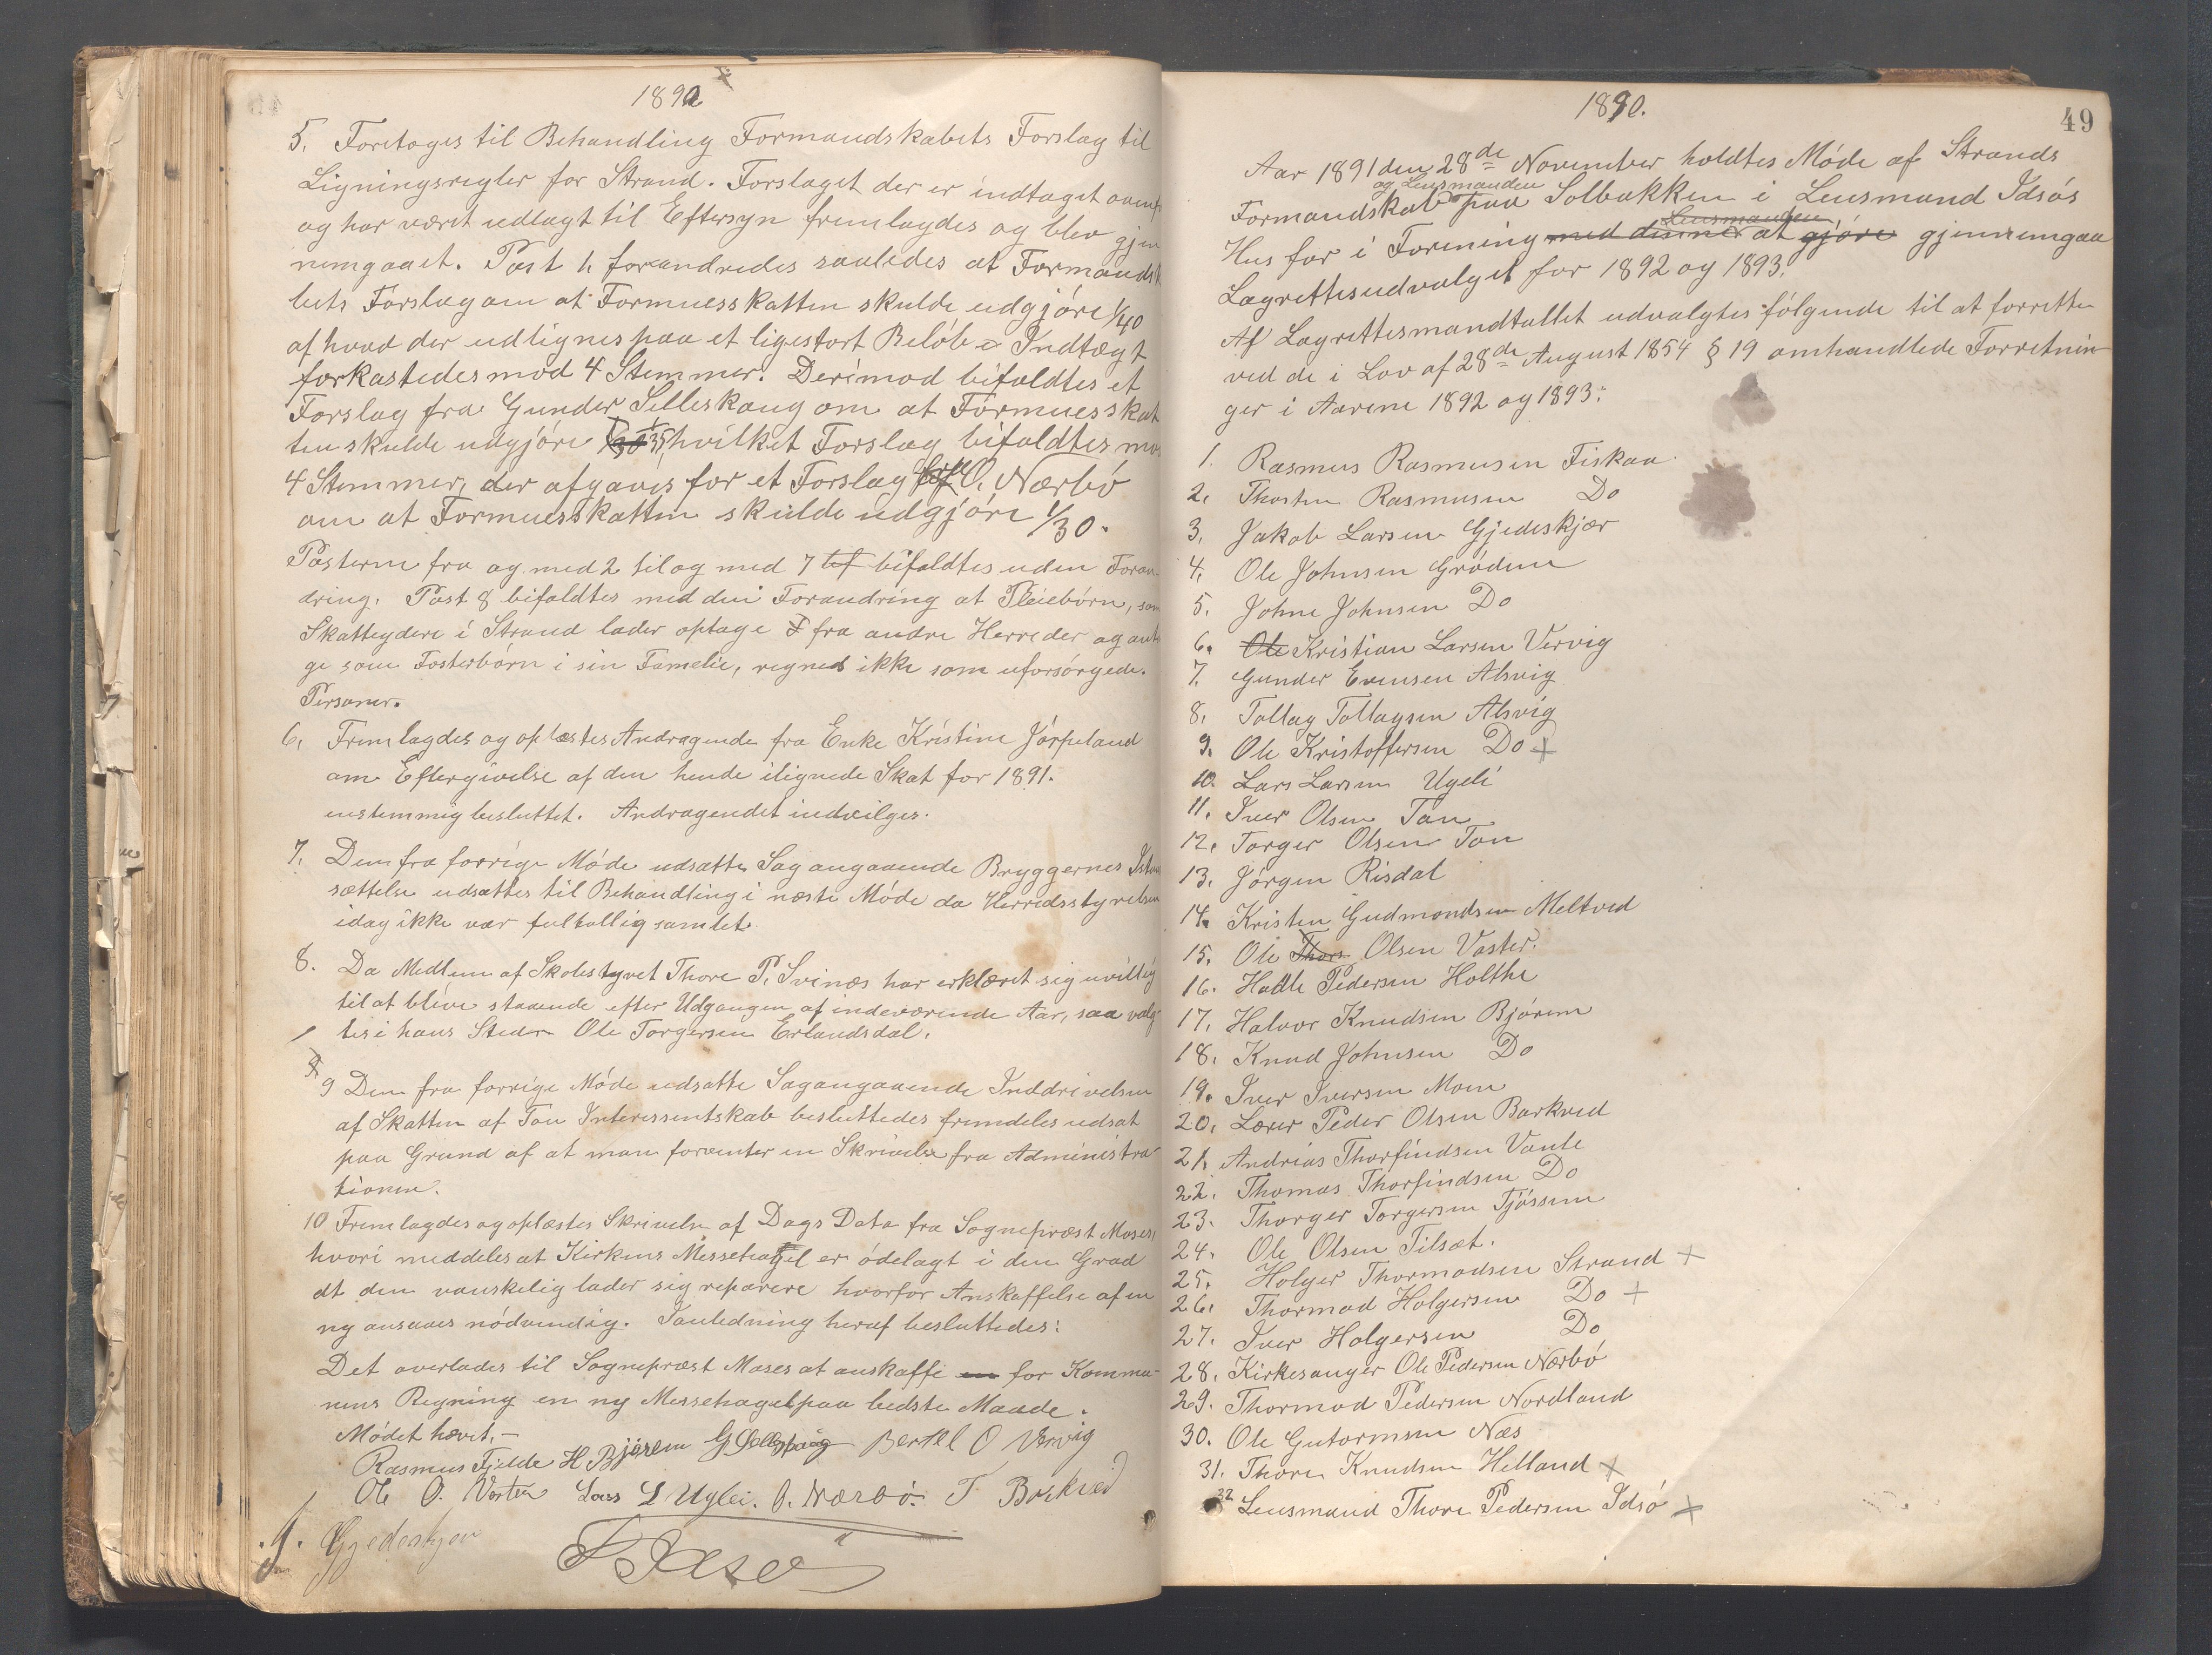 1890
5. Foretoges til Behandling Formandskabets Forslag til
Ligningsregler for Strand. Forslaget der er indtaget
og har været udlagt til Eftersyn fremlagdes og blev gjen
nemgaaet. Post 1. forandredes saaledes at Formandsk
bets Forslag om at Formuesskatten skulde udgjøre 1/40
af hvad der udlignes paa et ligestort Beløb Indtægt
forkastedes mod 4 Stemmer. Derimod bifaldtes et
Forslag fra Gunder Selleskaug om at Formuesskat
ten skulde udgjøre 1/35, hvilket Forslag bifaldtes mo
4 Stemmer, der afgaves for et Forslag O. Nærbø
om at Formuesskatten skulde udgjøre 1/30.
Posterne fra og med 2 til og med 7 bifaldtes uden Foran
dring. Post 8 bifaldtes med den Forandring at Pleiebørn, som
Skatteydere i Strand lader optage fra andre Herreder og ant
ge som Fosterbørn i sin Famelie, regnes ikke som uforsørgede.
Personer.
6. Fremlagdes og oplæstes Andragende fra Enke Kristine Jørpeland
om Eftergivelse af den hende ilignede Skat for 1891.
enstemmig besluttet. Andragendet indvilges.
7. Den fra forrige Møde udsatte Sag angaaende Bryggernes Istan
sættelse udsættes til Behandling i næste Møde da Herredsstyrelsen
idag ikke var fultallig samlet.
8. Da Medlem af Skolestyret Thore P. Svinæs har erklæret sig uvillig
til at blive staaende efter Udgangen af indeværende Aar, saa valg
tes i hans Sted Ole Torgersen Erlandsdal.
9 Den fra forrige Møde udsatte Sag angaaende Inddrivelsen
af Skatten af Tou Interessentskab besluttedes fremdeles udsat
paa Grund af at man forventer en Skrivelse fra Administra
tionen.
10 Fremlagdes og oplæstes Skrivelse af Dags Dato fra Sognepræst Moses,
hvori meddeles at Kirkens Messehagel er ødelagt i den Grad
at den vanskelig lader sig reparere hvorfor Anskaffelse af en
ny ansaaes nødvendig. Ianledning heraf besluttedes:
Det overlades til Sognepræst Moses at anskaffe en for Kommu-
nens Regning en ny Messehagel paa bedste Maade.
Mødet hævet.-
Rasmus Fjelde H Bjørem G Selleskaug Bertel O Vervig
Ole O. Vaster Lars L Uglei. O. Nærbø. T Barkved
J. Gjedeskjær
1890.
49
Aar 1891 den 28de November holdtes Møde af Strands
og Lensmanden
Formandskab paa Solbakken i Lensmand Idsøs
Lensmanden
Hus for i Forening med denne at gjøre gjennemgaa
Lagrettesudvalget for 1892 og 1893.
Af Lagrettesmandtallet udvalgtes følgende til at forrette
ved de i Lov af 28de August 1854 § 19 omhandlede Forretnin
ger i Aarene 1892 og 1893:
1. Rasmus Rasmusen Fiskaa
2. Thosten Rasmusen Do
3. Jakob Larsen Gjedeskjær
4. Ole Johnsen Grødem
5. Johne Johnsen Do
6. Ole Kristian Larsen Vervig
7. Gunder Evensen Alsvig
8. Tollag Tollagsen Alsvig
9. Ole Kristoffersen Do +
10. Lars Larsen Ugeli
11. Iver Olsen Tou
12. Torger Olsen Tou
13. Jørgen Risdal
14. Kristen Gudmondsen Meltved
15. Ole Thors Olsen Vaster.
16. Hadle Pedersen Holthe
17. Halvor Knudsen Bjørem
18. Knud Johnsen Do
19. Iver Iversen Moen
20. Lærer Peder Olsen Barkved
21. Andrias Thorfindsen Vaule
22. Thomas Thorfindsen Do
23. Thorger Torgersen Tjøssem
24. Ole Olsen Tilsæt.
25. Holger Thormodsen Strand +
26. Thormod Holgersen Do +
27. Iver Holgersen Do
28. Kirkesanger Ole Pedersen Nærbø
29. Thormod Pedersen Nordland
30. Ole Gutormsen Næs
31. Thore Knudsen Helland +
32 Lensmand Thore Pedersen Idsø +